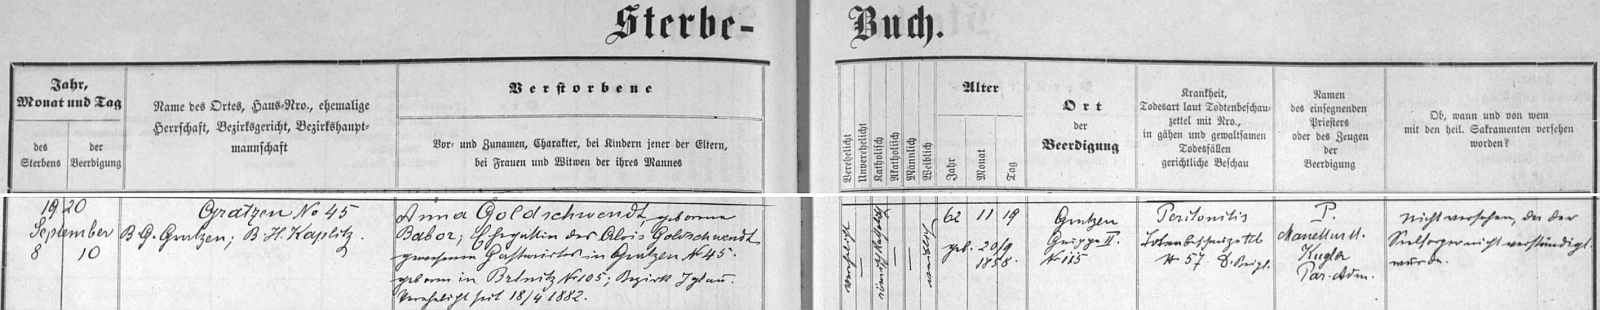 Sterbe-
Buch.
Jahr,
Monat und Tag
des
Sterbens
der
Beerdigung
Name des Ortes, Haus-Nro., ehemalige
Herrschaft, Bezirksgericht, Bezirkshaupt-
mannschaft
Verstorbene
Vor- und Zunamen, Charakter, bei Kindern jener der Eltern,
bei Frauen und Witwen der ihres Mannes
Verehelicht
Unverehelicht
Katholisch
Akatholisch
Männlich
Weiblich
Alter
Jahr
Monat
Tag
Ort
der
Beerdigung
Krankheit,
Todesart laut Todtenbeschau-
zettel mit Nro.,
in gähen und gewaltsamen
Todesfällen
gerichtliche Beschau
Namen
des einsegnenden
Priesters
oder des Zeugen
der
Beerdigung
Ob, wann und von wem
mit den heil. Sakramenten versehen
worden?
1920
September
8 10
Gratzen No 45
B. G. Gratzen; B. H. Kaplitz.
Anna Goldschwendt geborene
Babor; Ehegattin des Alois Goldschwendt
gewesenen Gastwirtes in Gratzen No 45.
geboren in Brtnitz No 105; Bezirk Iglau.
Verehelicht seit 18/4 1882.
verehelicht
römisch katholisch
weiblich
62 11 19
geb. 20/9
1858.
Gratzen
Gruppe II.
No 115
Peritonitis
Totenbeschauzettel
No 57.
P.
Kugler
Par. Adm.
Nicht versehen, da der
Seelsorger nicht verständigt
wurde.